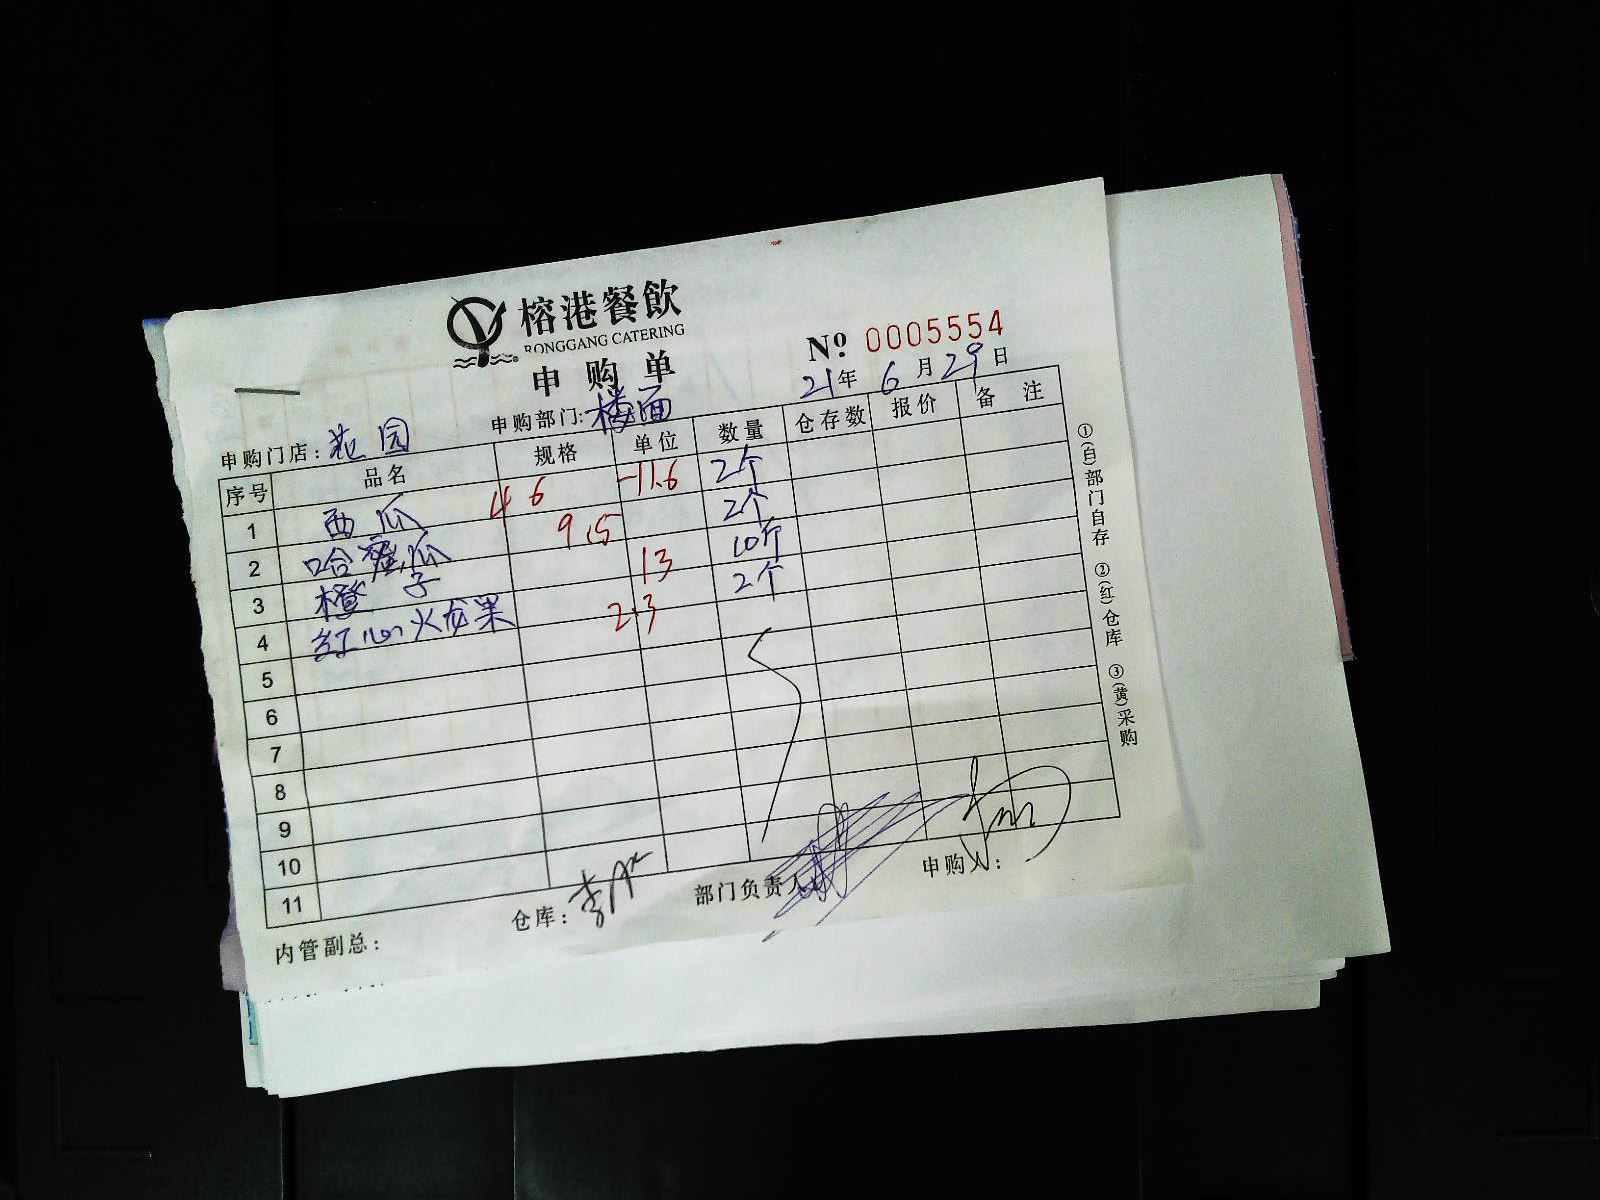 榕港餐飲
RONGGANG CATERING
申购单
№ 0005554
21年 6月 29日
申购门店：花园 申购部门：楼面
序号 品名 规格 单位 数量 仓存数 报价 备注
1 西瓜 4 6 -11.6 2个
2 哈蜜瓜 9.5 2个
3 橙子 13 10斤
4 红心火龙果 2.3 2个
5
6
7
8
9
10
11
内管副总： 仓库： 部门负责人 申购人：
①(白)部门自存 ②(红)仓库 ③(黄)采购